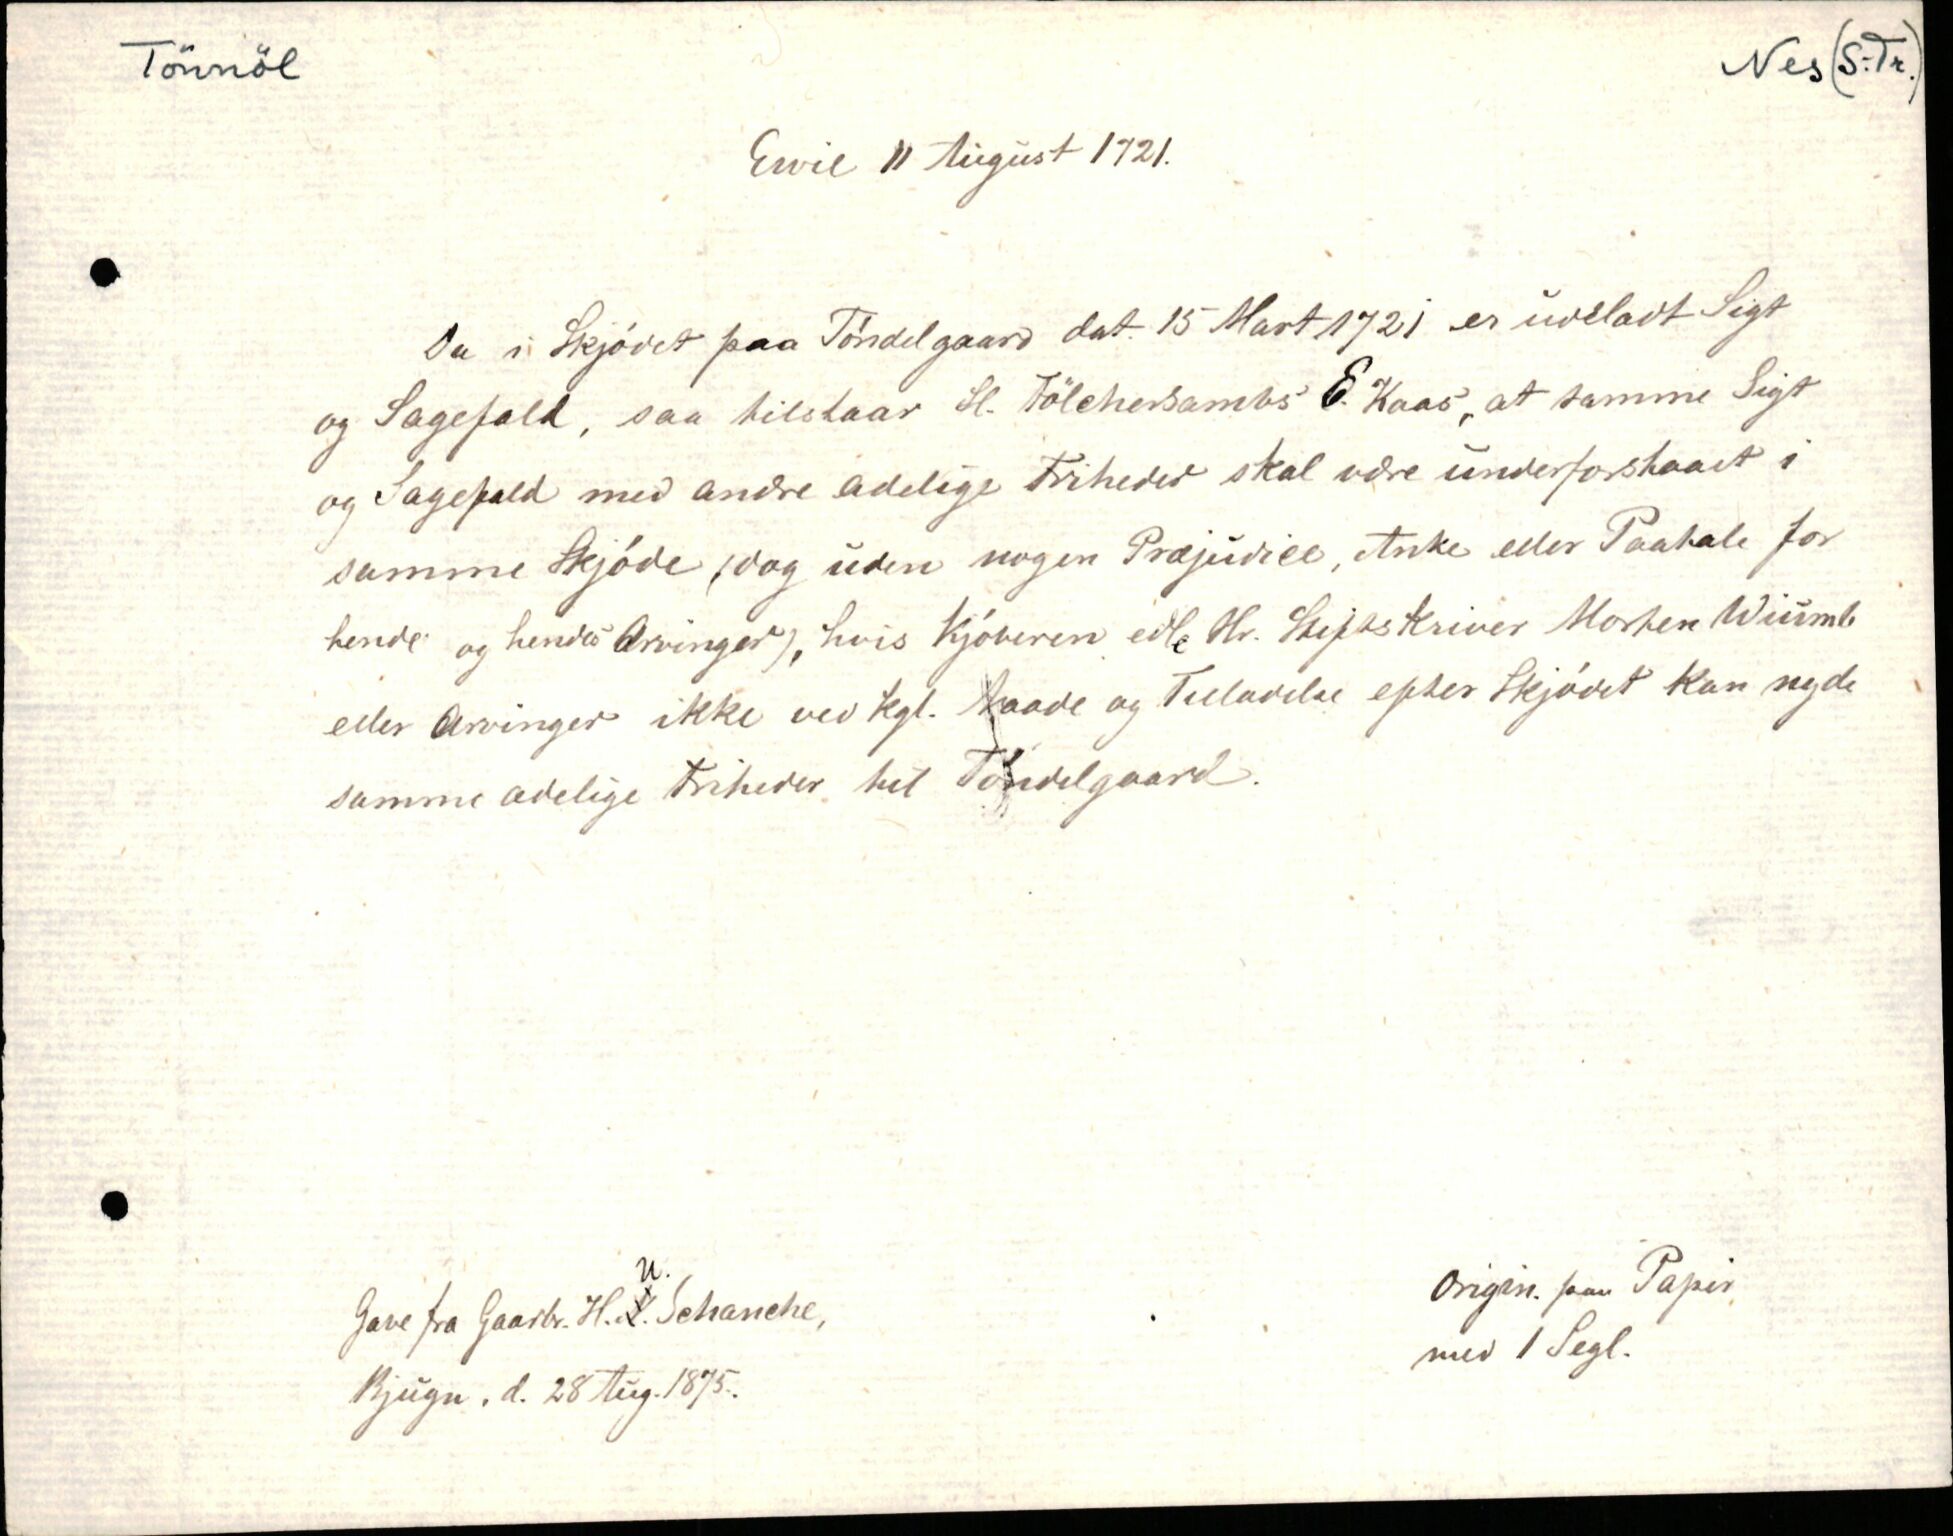 Tönnöl
Nes (S-Tr.)
Ervil 11 August 1721.
Da i Skjódet paa Tóndelgaard dat. 15 Mart 1721 er udeladt Sigt
og Sagefald, saa tilstaar Sl. Fölchersambs E. Kaas, at samme Sigt
og Sagefald med andre adelige Friheder skal være underforstaaet i
samme Skjóde (dog uden nogen Præjudice, Anke eller Paatale for
hende og hendes Arvinger), hvis Kjóberen edle Hr. Stiftskriver Morten Wiumb
eller Arvinger ikke ved kgl. Naade og Tilladelse efter Skjódet kan nyde
samme adelige Friheder til Tóndelgaard.
Gave fra Gaardbr. H. U. Schanche,
Bjugn. d. 28 Aug. 1875.
Origin. paa Papir
med 1 Segl.